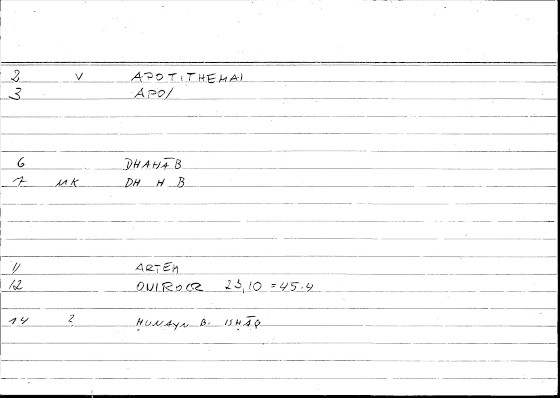 2 V APOTITHEMAI
3 APO/
6 DHAHĀB
7 MK DH H B
11 ARTĒM
12 ONIROCR 23,10 = 45.4
14 2 ḤUNAYN B. ISḤĀQ